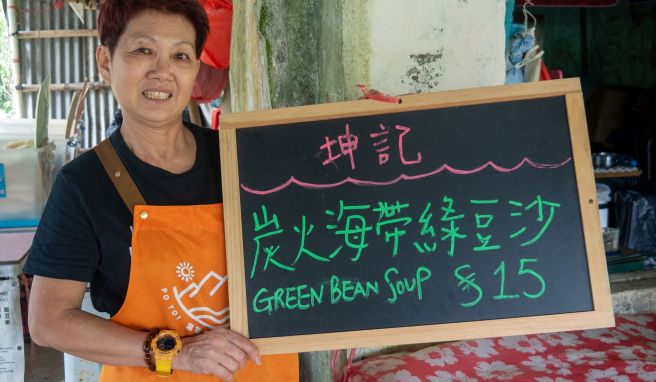 坤記
炭火海帶綠豆沙
GREEN BEAN SOUP $15
PO TOI